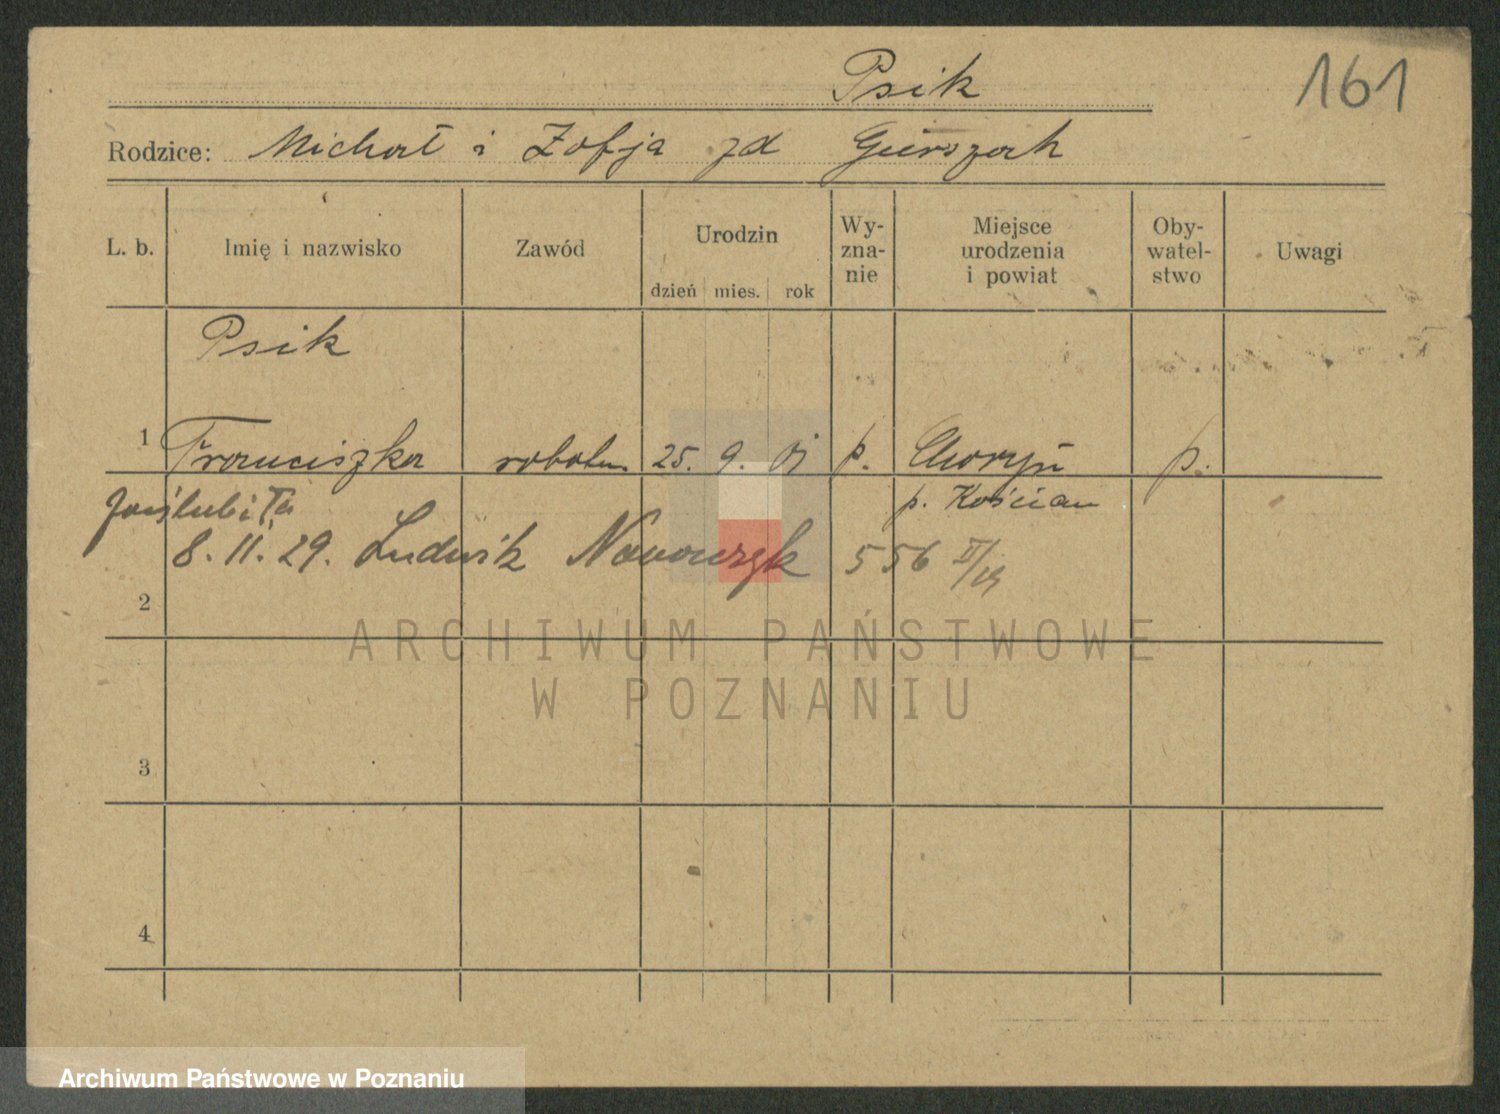 Psik
161
Rodzice: Michał i Zofja zd
L. b. Imię i nazwisko Zawód Urodzin dzień mies. rok Wy-zna-nie Miejsce urodzenia i powiat Oby-watel-stwo Uwagi
Psik
1 Franciszka robotn. 25. 9. 01 p. Choryń p.
p. Kościan
zaślubiła
8. 11. 29. Ludwik Nawowczyk 556
2
ARCHIWUM PAŃSTWOWE
W POZNANIU
3
4
Archiwum Państwowe w Poznaniu